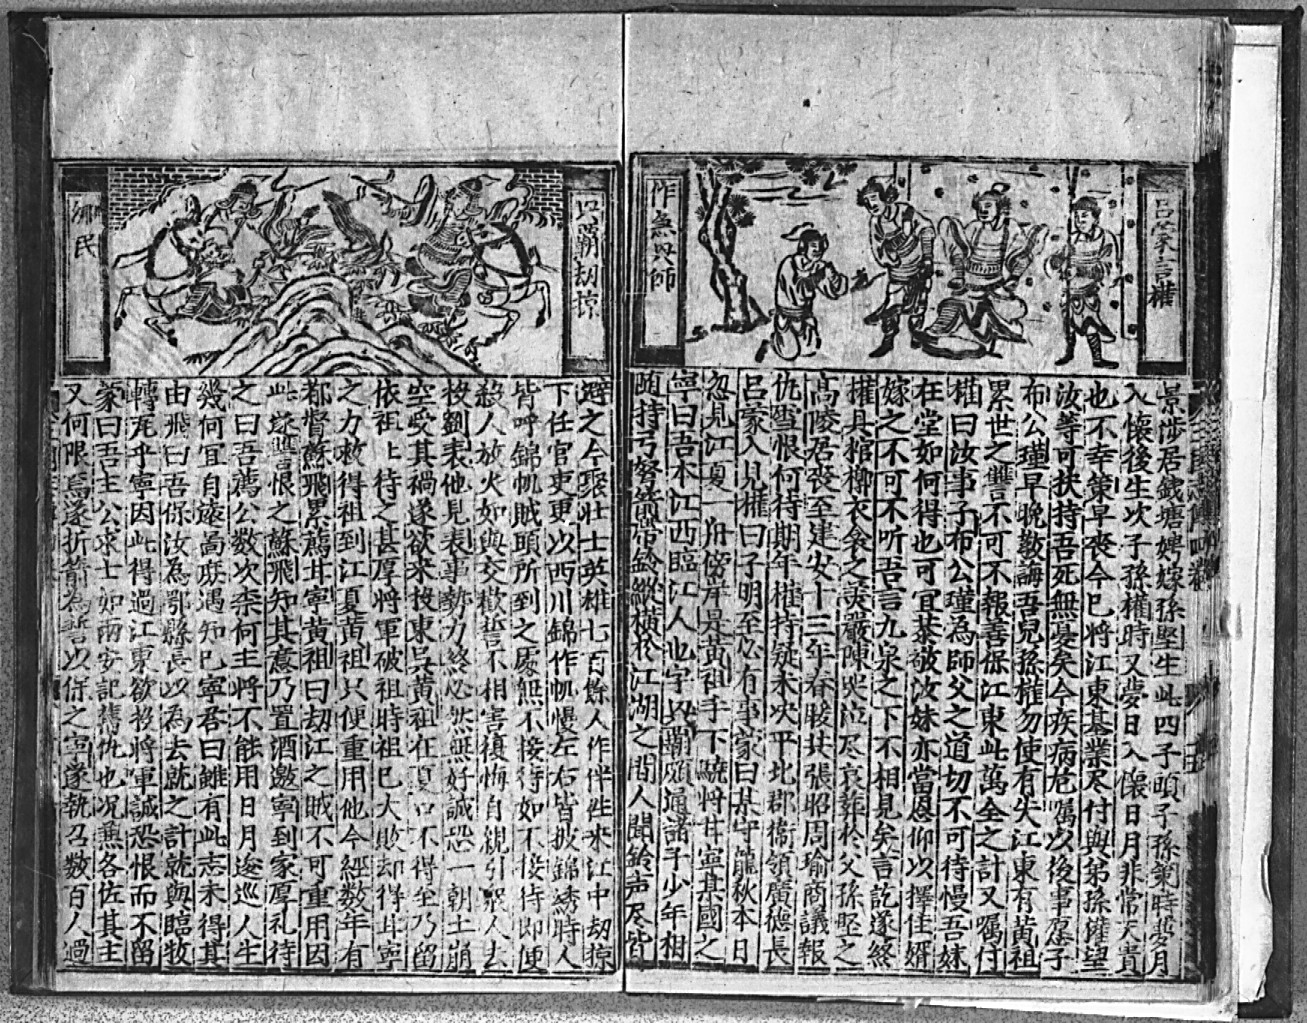 呂蒙言權
作急興師
景涉居錢塘娉嫁孫堅生此四子頭子孫策時夢月
入懷後生次子孫權時又夢日入懷日月非常大貴
也不幸策早喪今已將江東基業尽付與弟孫權望
汝等可扶持吾死無憂矣今疾病危囑以後事愿子
布公瑾早晚教誨吾兒孫權勿使有失江東有黃祖
累世之讐不可不報善保江東此萬全之計又囑付
權曰汝事子布公瑾為師父之道切不可待慢吾妹
在堂如何得也可宜恭敬汝妹亦當恩仰以擇佳婿
嫁之不可不听吾言九泉之下不相見矣言訖遂終
權具棺槨衣衾之美嚴陳哭泣尽哀葬於父孫堅之
高陵居喪至建安十三年春駿共張昭周瑜商議報
仇雪恨何待期年權持疑未次平北郡衞領廣德長
呂蒙入見權曰子明至必有事蒙曰某守龍秋本日
忽見江夏一舟傍岸是黃祖手下驍將甘寧某國之
寧曰吾本江西臨江人也字興霸頗通諸子少年相
随持弓弩箭帶鈴縱橫於江湖之間人聞鈴声尽皆
興霸刼掠
鄉民
避之今聚壯士英雄七百餘人作伴往來江中刼掠
下任官吏更以西川錦作帆慢左右皆披錦綉時人
皆呼錦帆賊頭所到之處無不接待如不接待即便
殺人放火如與交歡誓不相害復悔自親引衆人去
投劉表他見表事勢力終必然無好誠恐一朝土崩
空受其禍遂欲來投東吳黃祖在夏口不得坐乃留
依祖上待之甚厚將軍破祖時祖已大敗却得甘寧
之力救得祖到江夏黃祖只便重用他今經数年有
都督蘇飛累薦甘寧黃祖曰刼江之賊不可重用因
此遂讐恨之蘇飛知其意乃置酒邀寧到家厚礼待
之曰吾薦公数次柰何主將不能用日月逡巡人生
幾何宜自逺啚庶遇知已寧君曰雖有此志未得其
由飛曰吾保汝為鄂縣長以為去就之計就與臨牧
轉凣乎寧因此得過江東欲投將軍誠恐恨而不留
蒙曰吾主公求士如雨安記舊仇也况兼各佐其主
又何限焉遂折箭為誓以保之寧遂執召数百人過